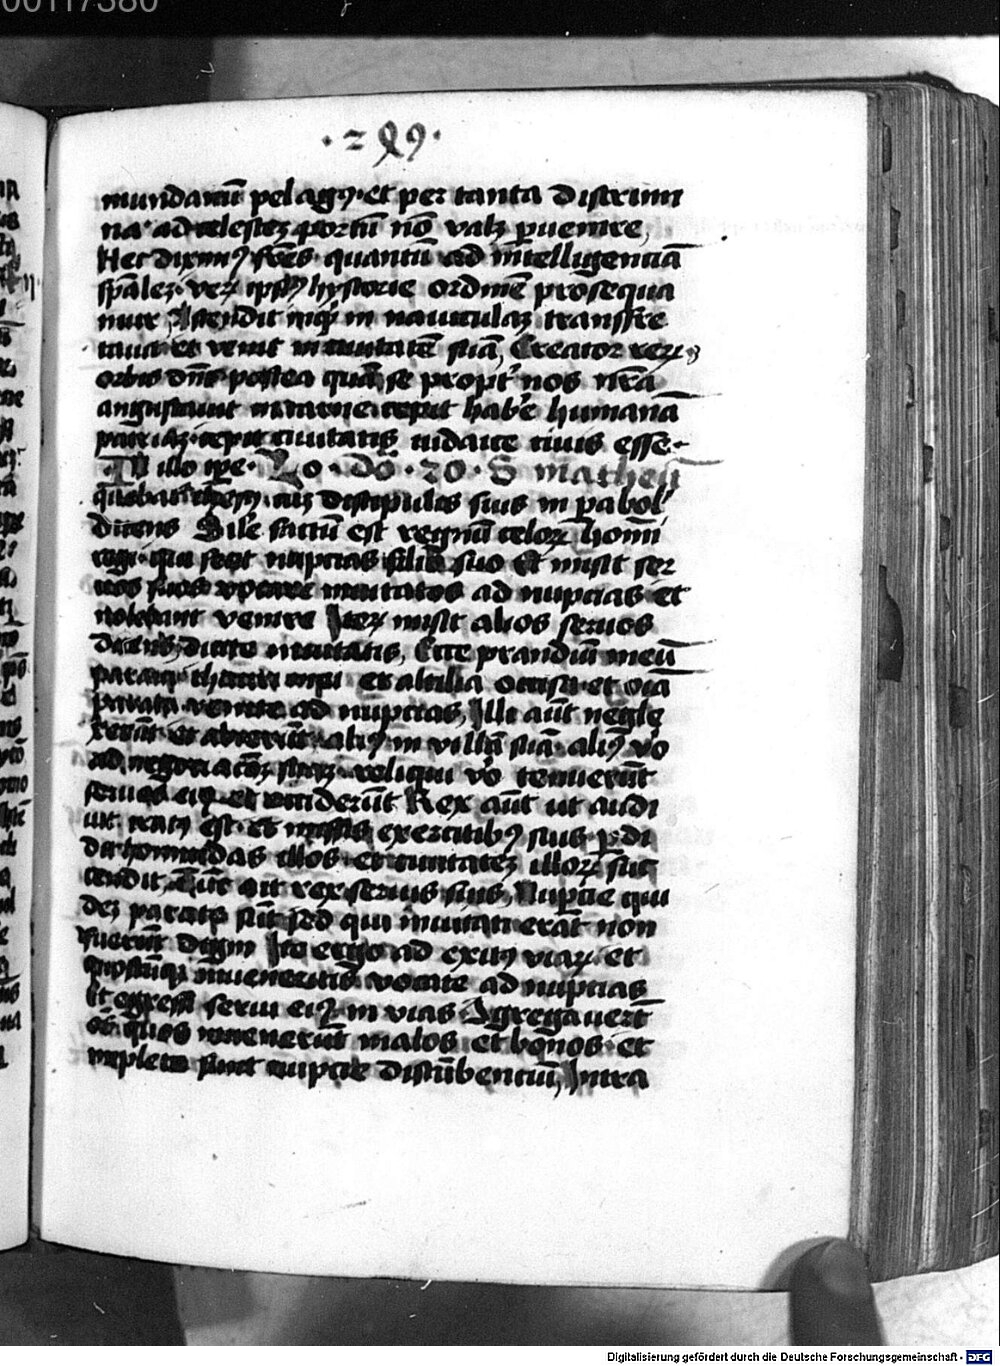 00117380
·289·
mundanū pelagꝰ et per tanta discrimi
na ad celestez portū nō valz ꝑuenire,
Hec diximꝰ fr̄es quantū ad intelligentiā
ordinē prosequa
mur Ascendit in nauiculaz transfre
tauit et venit in ciuitatē suā, Creator reꝝ
orbis dn̄s postea quā se propt' nos nr̄a
cepit hab'e humanā
patriaz cepit ciuitatis iudaice ciuis esse
In illo tꝑe · do · 20 · S mathei
discipulis suis in pabol'
dicens Sil'e factū est regnū celoꝝ homi
regi qui fecit nuptias filio suo Et misit ser
uos suos vocare inuitatos ad nuptias et
nolebant venire Iteꝝ misit alios seruos
dicens, dicite inuitatis, Ecce prandiū meū
paraui thauri mei et altilia occisa et oīa
parata venite ad nuptias, Illi aūt negle
xerūt et abierūt aliꝰ in villā suā aliꝰ v'o
ad negociacōz suaz reliqui v'o tenuerūt
seruos eiꝰ et occiderūt Rex aūt ut audi
uit iratꝰ est et missis exercitibꝰ suis ꝑdi
dit homicidas illos et ciuitatez illoꝝ suc
cendit, Tūc ait rex seruis suis, Nuptie qui
dez parate sūt sed qui inuitati erāt non
fuerūt digni Ite ergo ad exitꝰ viaꝝ et
quoscūqz inueneritis vocate ad nuptias
Et egressi serui eiꝰ in vias 9gregauerūt
oēs quos inuenerūt malos et bonos et
implete sunt nuptie discūbenciū, Intra
Digitalisierung gefördert durch die Deutsche Forschungsgemeinschaft - DFG